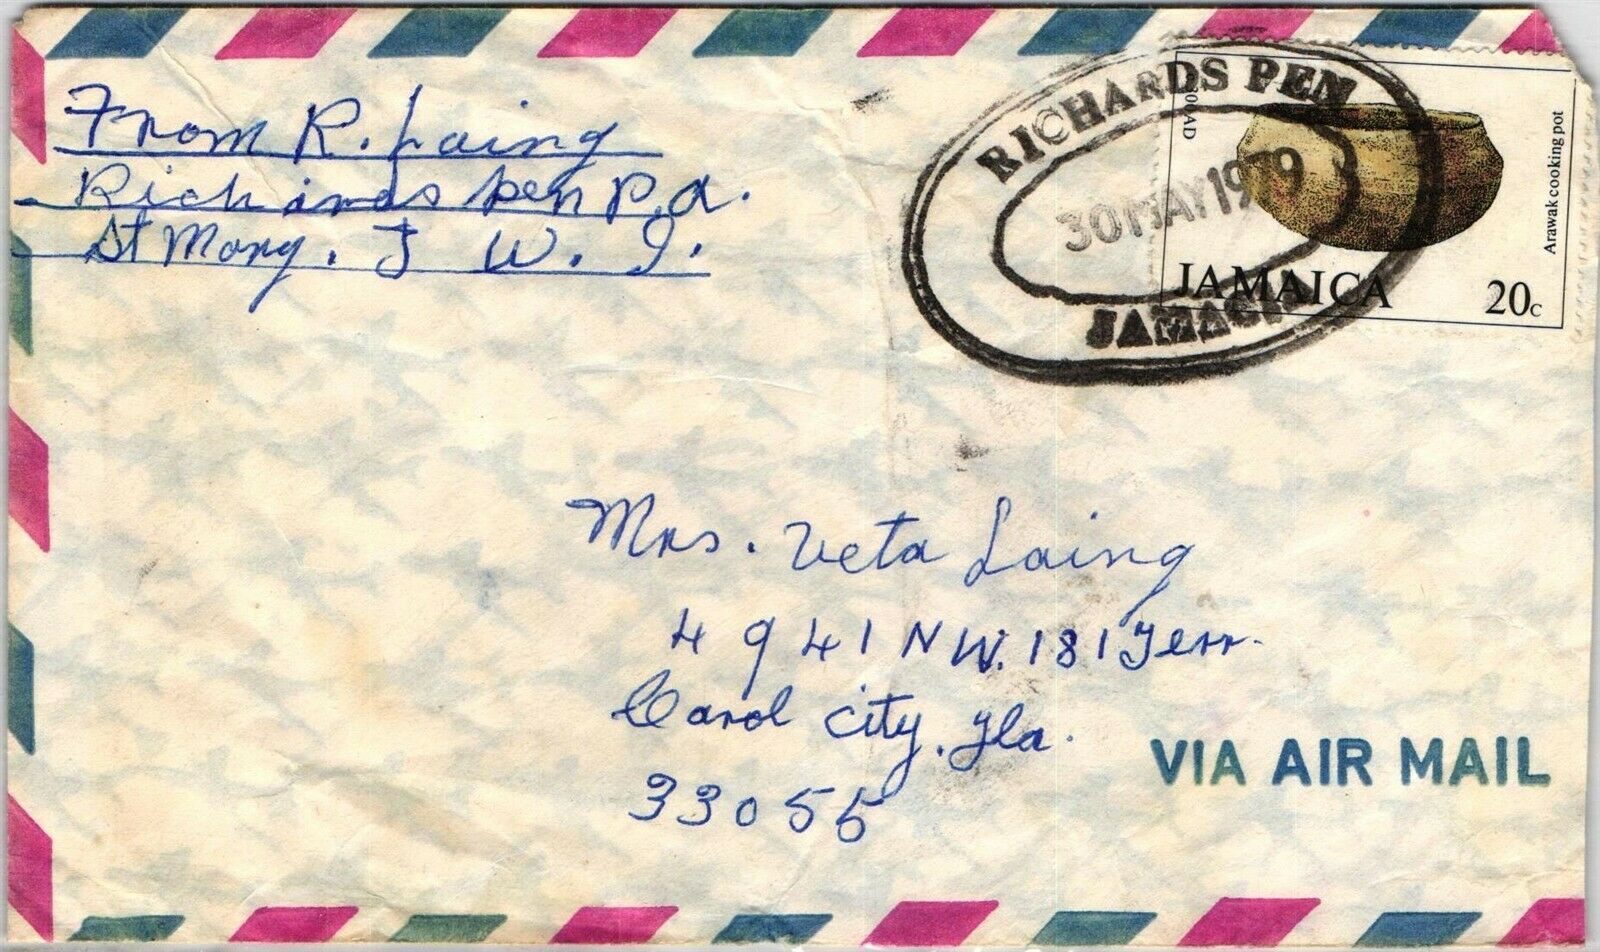 From R. Laing
Richards Pen P.A.
St Mary. J W. I.
RICHARDS PEN
30 MAY 1979
JAMAICA
AD
Arawak cooking pot
JAMAICA 20c
Mrs. Veta Laing
4941 NW. 181 Terr.
Carol City, Fla.
33055
VIA AIR MAIL